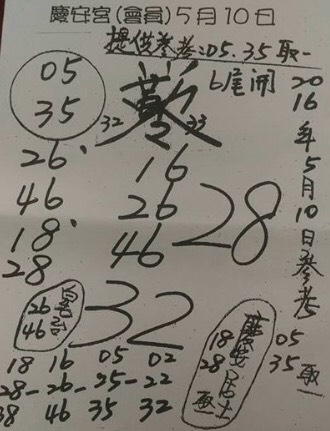 慶安宮(會員)5月10日
提供參考:05.35取一
05
35
32 33
6尾開
2016年5月10日參考
26
46
18
28
16
26
46
28
32
26
46
18
28
05
35
取一
18 16 05 02
28-26-25-22
38 46 35 32